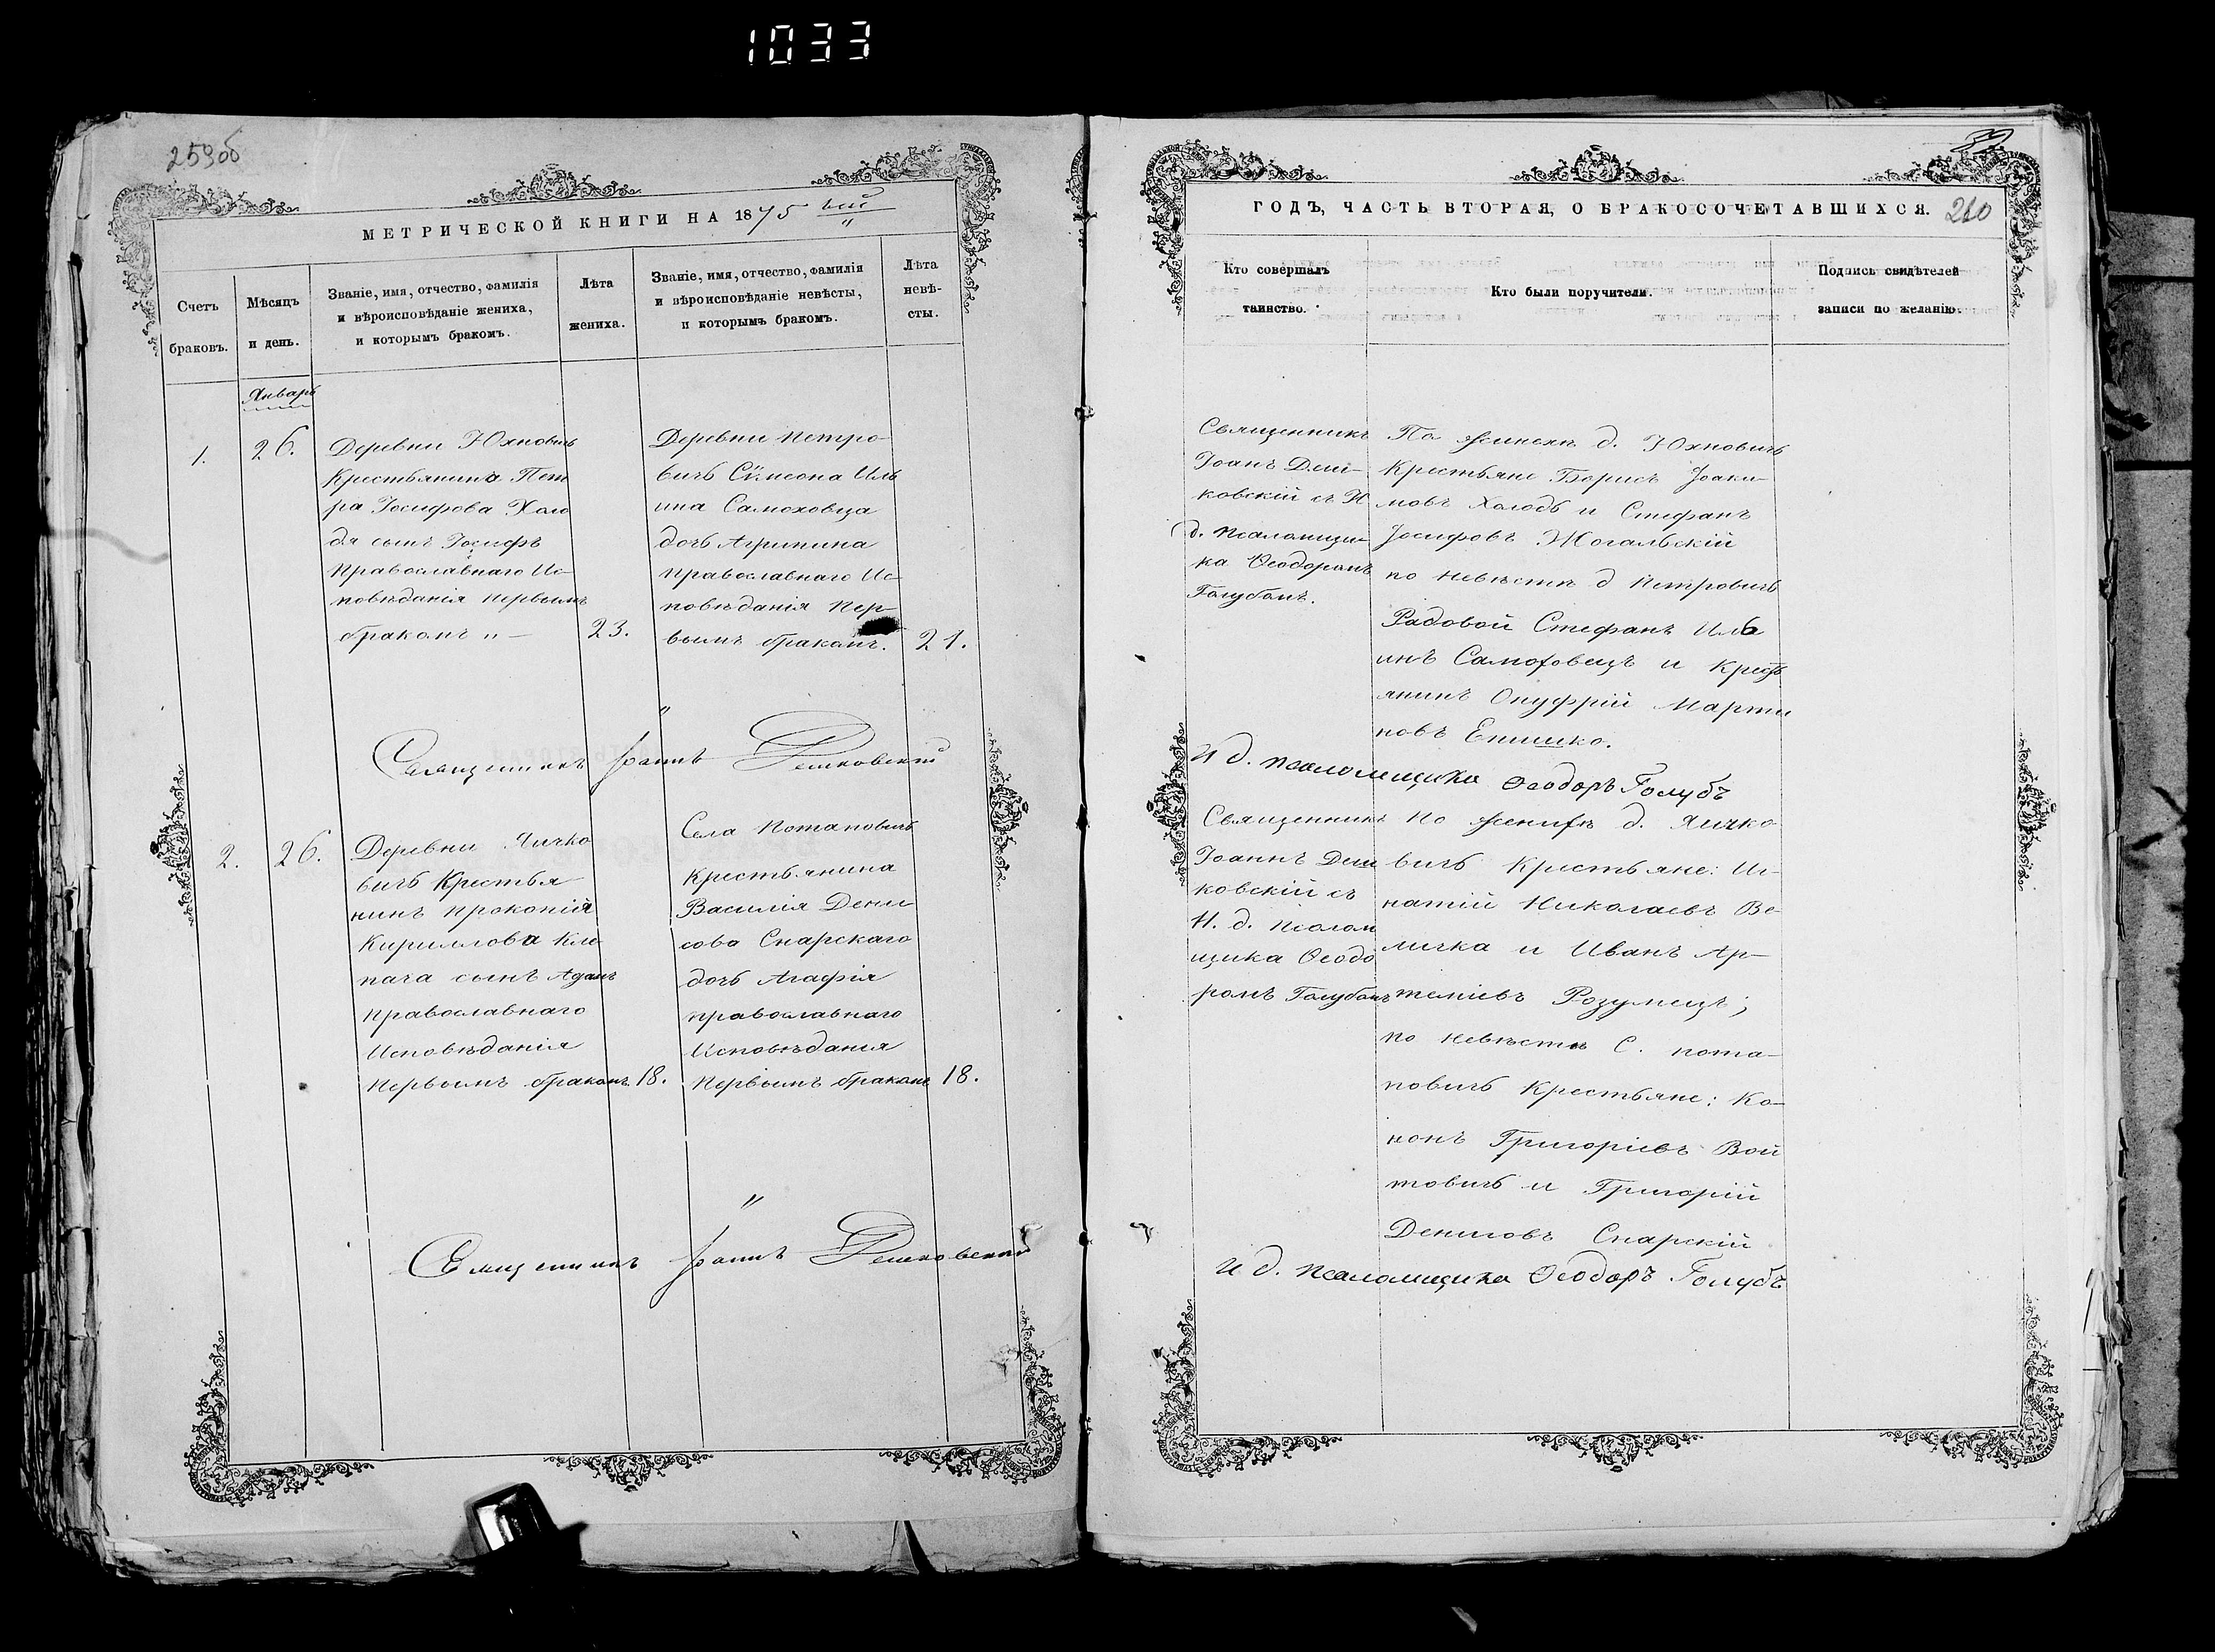 1033
259об
МЕТРИЧЕСКОЙ КНИГИ НА 1875 ый
Счетъ браковъ.
Мѣсяцъ и день.
Званіе, имя, отчество, фамилія
и вѣроисповѣданіе жениха,
и которымъ бракомъ.
Лѣта
жениха.
Званіе, имя, отчество, фамилія
и вѣроисповѣданіе невѣсты,
и которымъ бракомъ.
Лѣта
невѣ-
сты.
Январь
1.
26.
Деревни Юхновичъ
Крестьянина Пет
ра Іосифова Холо
дя сынъ Іосифъ
православнаго Ис-
повѣданія первымъ
бракомъ "—
23.
Деревни Петро-
вичъ Сѵмеона Иль
ина Самоховца
дочь Агрипина
православнаго Ис-
повѣданія пер-
вымъ бракомъ.
21.
Священникъ Іоаннъ Дешковский
2.
26.
Деревни Яичко
вичъ Крестья
нинъ Прокопія
Кириллова Кле
пача сынъ Адамъ
православнаго
Исповѣданія
первымъ бракомъ.
18.
Села Потаповичъ
Крестьянина
Василія Дени
сова Снарскаго
дочь Агафія
православнаго
Исповѣданія
первымъ бракомъ
18.
Священникъ Іоаннъ Дешковский
ГОДЪ, ЧАСТЬ ВТОРАЯ, О БРАКОСОЧЕТАВШИХСЯ.
260
Кто совершалъ
таинство.
Кто были поручители.
Подпись свидѣтелей
записи по желанію.
Священникъ
Іоанъ Деш-
ковскій съ И
д. псаломщи-
ка Ѳеодоромъ
Голубомъ.
По женихѣ д. Юхновичъ
Крестьяне Борисъ Іоаки-
мовъ Холодъ и Стефанъ
Іосифовъ Жогальскій
по невѣстѣ д Петровичъ
Радовой Стефанъ Иль
инъ Самоховецъ и Крестъ
янинъ Онуфрій Марти
новъ Енишко.
И д. псаломщика Ѳеодоръ Голубъ
Священникъ
Іоаннъ Деш
ковскій съ
И. д. псалом
щика Ѳеодо
ромъ Голубомъ
По женихѣ д. Яичко
вичъ Крестьяне: Иг-
натій Николаевъ Ве-
личка и Иванъ Ар-
теміевъ Розумецъ;
по невѣстѣ С. Пота-
повичъ Крестьяне: Ко-
нонъ Григоріевъ Вой
товичъ и Григорій
Денисовъ Снарскій
И д. псаломщика Ѳеодоръ Голубъ